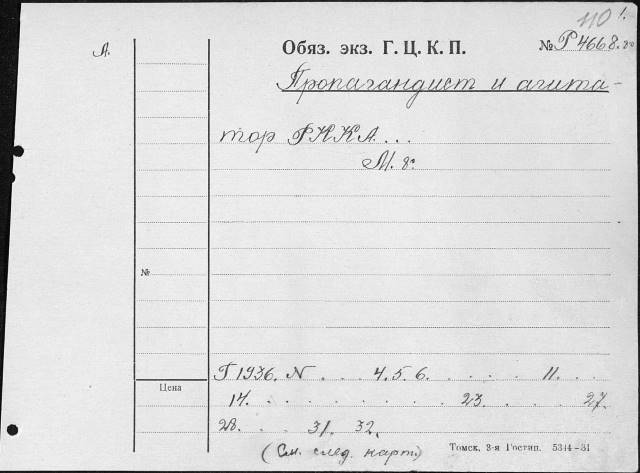 110 1.
А. Обяз. экз. Г. Ц. К. П. № Р 4668. 8°
Пропагандист и агита-
тор РККА...
М. 8°.
№
Г 1936. N . . . 4. 5. 6. . . . . 11. . .
Цена
14. . . . . . . . . 23. . . . 27.
28. . . 31. 32.
(См. след. карт.)
Томск, 3-я Гостип. 5344-31